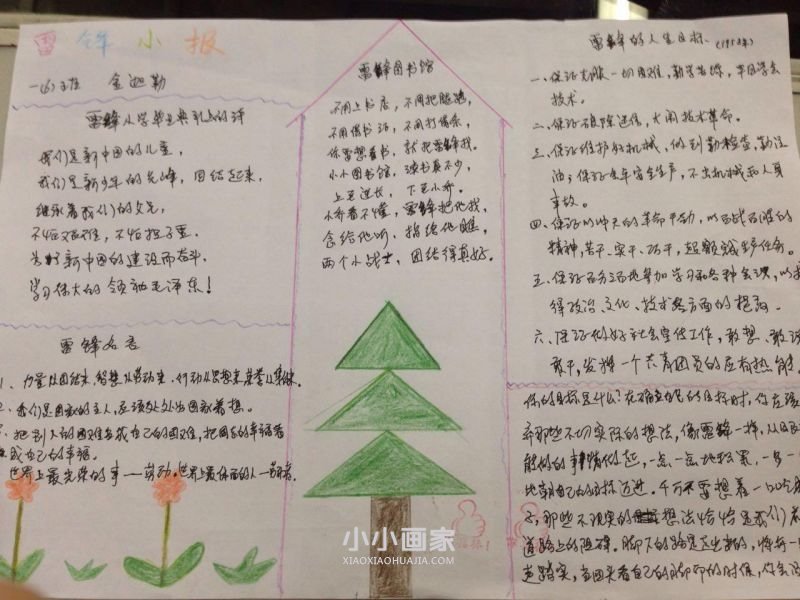 雷锋小报
一(6)班 金迦勒
雷锋小学毕业典礼上的诗
我们是新中国的儿童,
我们是新少年的先锋,团结起来,
继承着我们的父兄,
不怕艰难,不怕担子重,
为了新中国的建设而奋斗,
学习伟大的领袖毛泽东!
雷锋名言
1、力量从团结来,智慧从劳动来,行动从思想来,荣誉从集体来。
2、我们是国家的主人,应该处处为国家着想。
把别人的困难当成自己的困难,把同志的幸福看
成自己的幸福。
世界上最光荣的事——劳动。世界上最体面的人—劳动者。
雷锋图书馆
不用上书店,不用把腿跑,
不用借书证,不用打借条,
你要想看书,就把雷锋找。
小小图书馆,读书真不少,
上至连长,下至小乔。
小乔看不懂,雷锋把他找,
念给他听,指给他瞧,
两个小战士,团结得真好。
雷锋的人生目标 (1958年)
一、保证克服一切困难,勤学苦练,早日学会
技术。
二、保证破除迷信,大闹技术革命。
三、保证维护好机械,做到勤检查,勤注
油;保证全年安全生产,不出机械和人身
事故。
四、保证以冲天的革命干劲,以百战百胜的
精神,苦干、实干、巧干,超额完成生产任务。
五、保证百分之百地参加学习和各种会议,以
得政治、文化、技术各方面的提高。
六、保证做好社会宣传工作,敢想、敢说
敢干,发挥一个共青团员的应有热能。
你的目标是什么?在确立自己的目标时,你应该
弃那些不切实际的想法,像雷锋一样,从
能做的事情做起,一点一点地积累,一步一
地朝自己的目标迈进。千万不要想着一口吃
子,那些不现实的想法恰恰是我们
道路上的阻碍。脚下的路是走出来的,将每一
走踏实,当回头看自己的脚印的时候,你会
小小画家
XIAOXIAOHUAJIA.COM